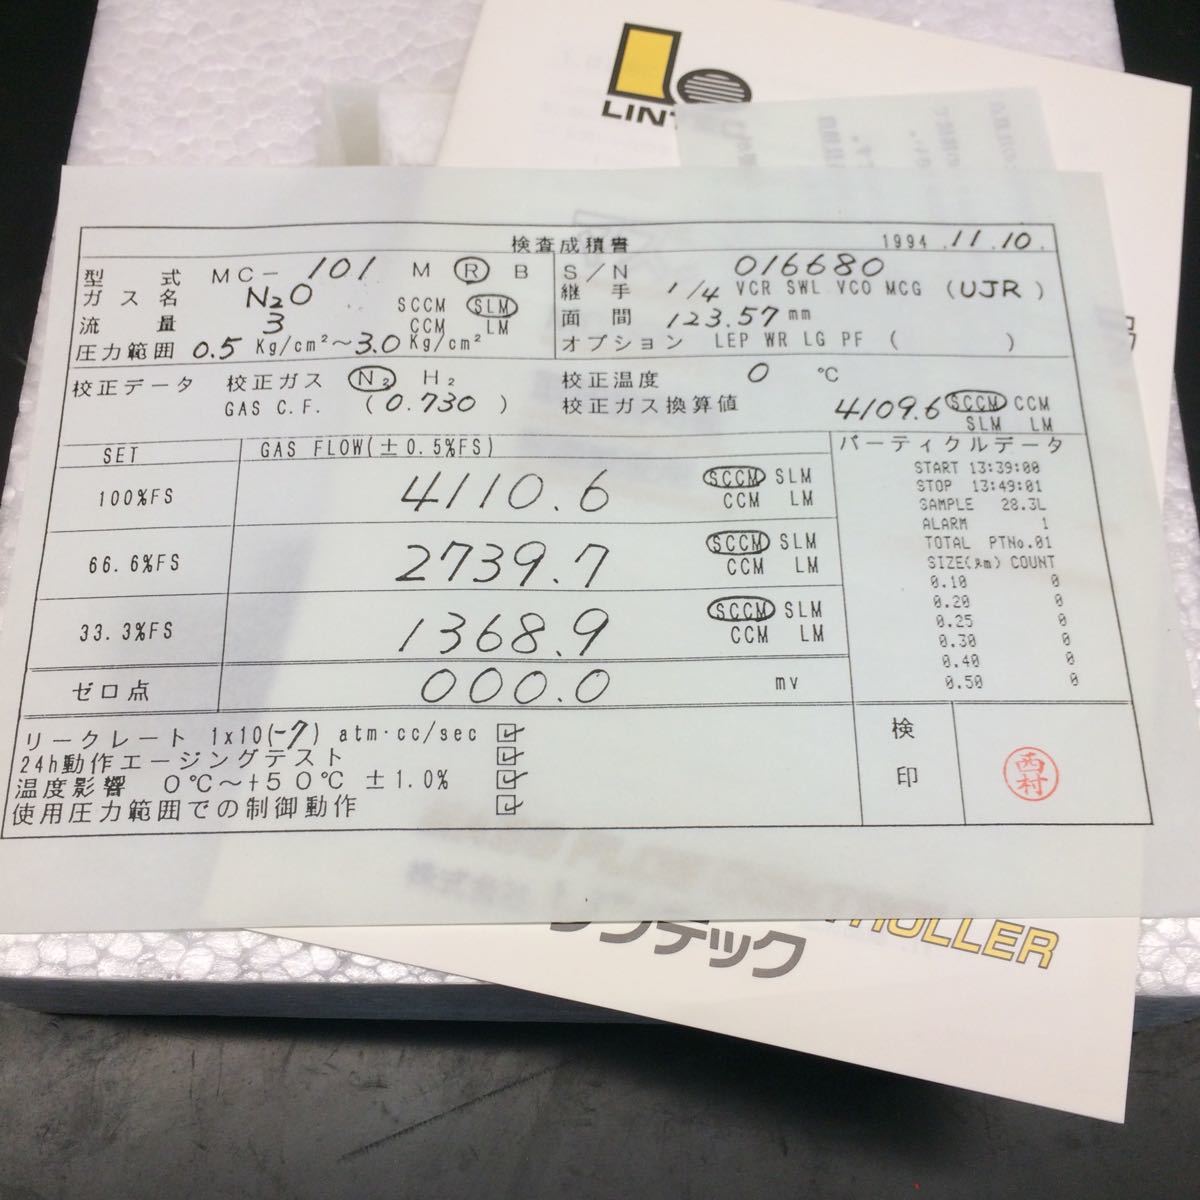 LINT
検査成績書 1994.11.10.
型式 MC-101 M R B S/N 016680
ガス名 N2O 継手 1/4 VCR SWL VCO MCG (UJR)
流量 3 SCCM SLM CCM LM 面間 123.57 mm
圧力範囲 0.5 Kg/cm²~3.0 Kg/cm² オプション LEP WR LG PF ( )
校正データ 校正ガス N₂ H₂ 校正温度 0 ℃
GAS C.F. (0.730) 校正ガス換算値 4109.6 SCCM CCM
SLM LM
SET GAS FLOW(±0.5%FS) パーティクルデータ
100%FS 4110.6 SCCM SLM
CCM LM
66.6%FS 2739.7 SCCM SLM
CCM LM
33.3%FS 1368.9 SCCM SLM
CCM LM
ゼロ点 000.0 mv
START 13:39:00
STOP 13:49:01
SAMPLE 28.3L
ALARM 1
TOTAL PTNo.01
SIZE(μm) COUNT
0.10 0
0.20 0
0.25 0
0.30 0
0.40 0
0.50 0
リークレート 1x10(-7) atm·cc/sec ☑
24h動作エージングテスト ☑
温度影響 0℃~+50℃ ±1.0% ☑
使用圧力範囲での制御動作 ☑
検印
西村
ROLLER
リンテック